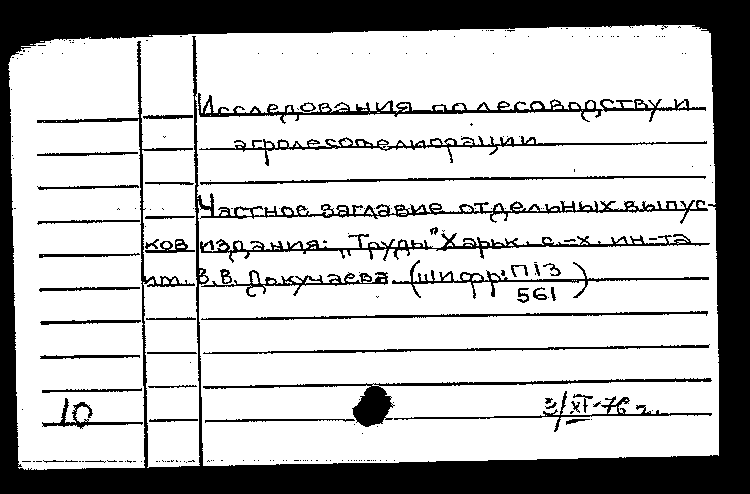 Исследования по лесоводству и
агролесомелиорации
Частное заглавие отдельных выпус-
ков издания: „Труды" Харьк. с.-х. ин-та
им. В.В. Докучаева. (шифр: П13
561)
10
3/XI-76 г.